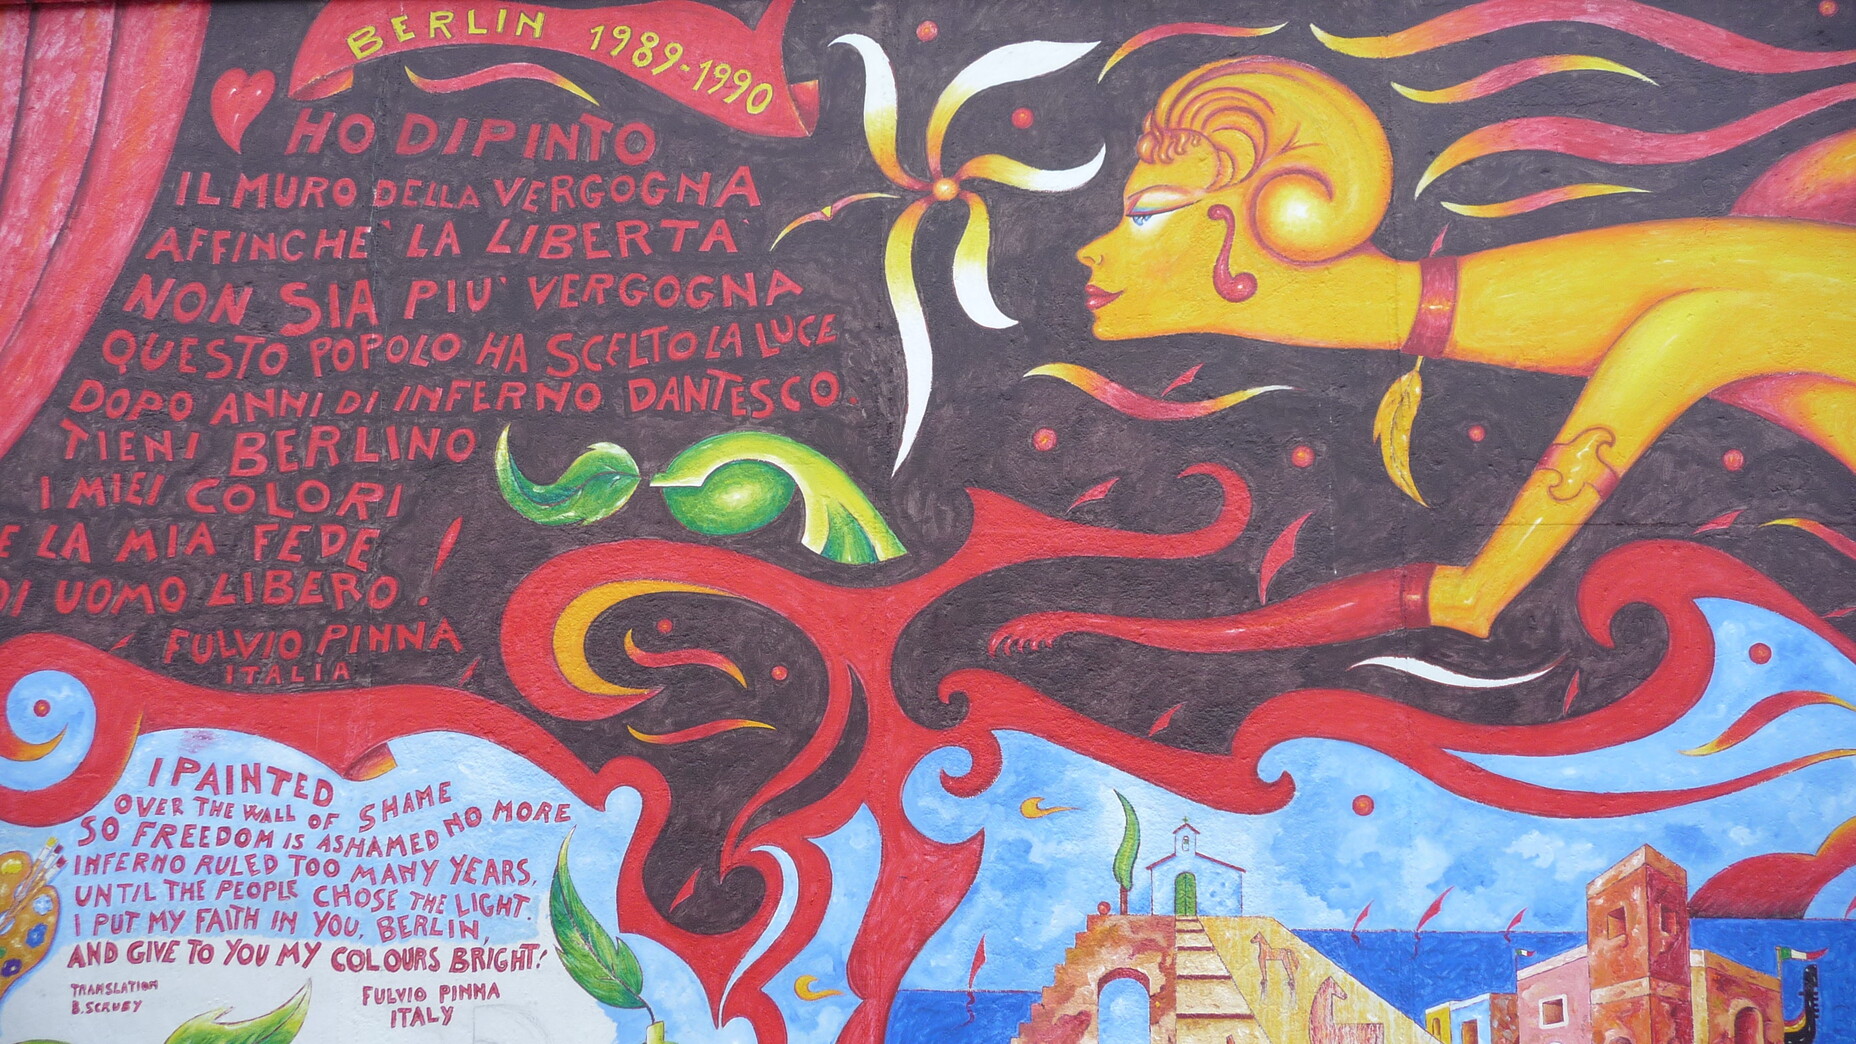 BERLIN 1989-1990
HO DIPINTO
IL MURO DELLA VERGOGNA
AFFINCHE' LA LIBERTA'
NON SIA PIU' VERGOGNA
QUESTO POPOLO HA SCELTO LA LUCE
DOPO ANNI DI INFERNO DANTESCO.
TIENI BERLINO
I MIEI COLORI
E LA MIA FEDE
DI UOMO LIBERO!
FULVIO PINNA
ITALIA
I PAINTED
OVER THE WALL OF SHAME
SO FREEDOM IS ASHAMED NO MORE
INFERNO RULED TOO MANY YEARS,
UNTIL THE PEOPLE CHOSE THE LIGHT.
I PUT MY FAITH IN YOU, BERLIN,
AND GIVE TO YOU MY COLOURS BRIGHT!
TRANSLATION
B. SCRUBY
FULVIO PINNA
ITALY